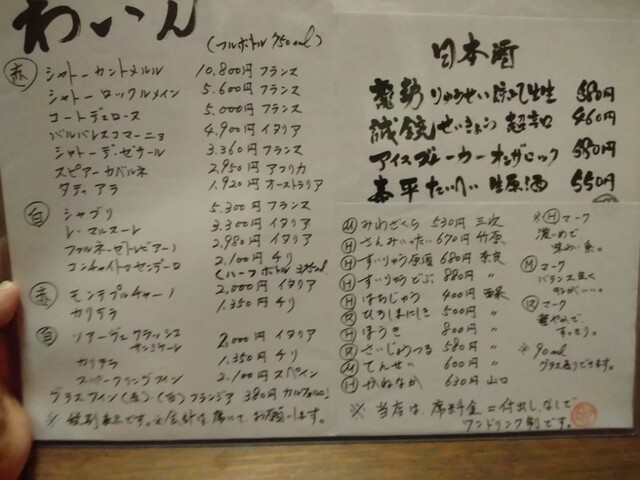 わいん
(フルボトル 750ml)
赤 シャトーカントメルル 10,800円 フランス
シャトーロックルメイン 5,600円 フランス
コートデュローヌ 5,000円 フランス
バルバレスコマーニョ 4,900円 イタリア
シャトーデーゼサール 3,360円 フランス
スピアーカバルネ 2,950円 アフリカ
タティアラ 1,920円 オーストラリア
白 シャブリ 5,300円 フランス
レ・マルスーレ 3,300円 イタリア
ファルネーゼトレビアーノ 2,980円 イタリア
コンチャイトロサンデーロ 2,100円 チリ
(ハーフボトル 375ml)
赤 モンテプルチャーノ 2,000円 イタリア
カリテラ 1,350円 チリ
白 ソアーヴェクラッシコ サンミケーレ 2,000円 イタリア
カリテラ 1,350円 チリ
スパークリングワイン 2,100円 スペイン
グラスワイン(赤)・(白) フランジア 380円 カルフォルニア
※ 税別表示です。お会計は席にて、お願いします。
日本酒
龍勢 りゅうせい 生生 580円
誠鏡 せいきょう 超辛口 460円
アイスブレーカー オンザロック 550円
喜平 たいへい 生原酒 550円
M みわざくら 530円 三次
H さんみいったい 670円 竹原
H すいりゅう原酒 680円 奈良
H すいりゅうどぶ 880円 〃
H はちじゅう 400円 西条
R ひろしまにしき 500円 〃
H ほうき 800円 〃
R さいじょうつる 580円 〃
M てんせい 600円 〃
H かねなか 630円 山口
※ H マーク
濃いめで、
味わい系。
M マーク
バランス良く
R マーク
軽やかで、
すっきり。
※ 90ml
グラス売りできます。
※ 当店は、席料金=付出しなしで
ワンドリンク制です。